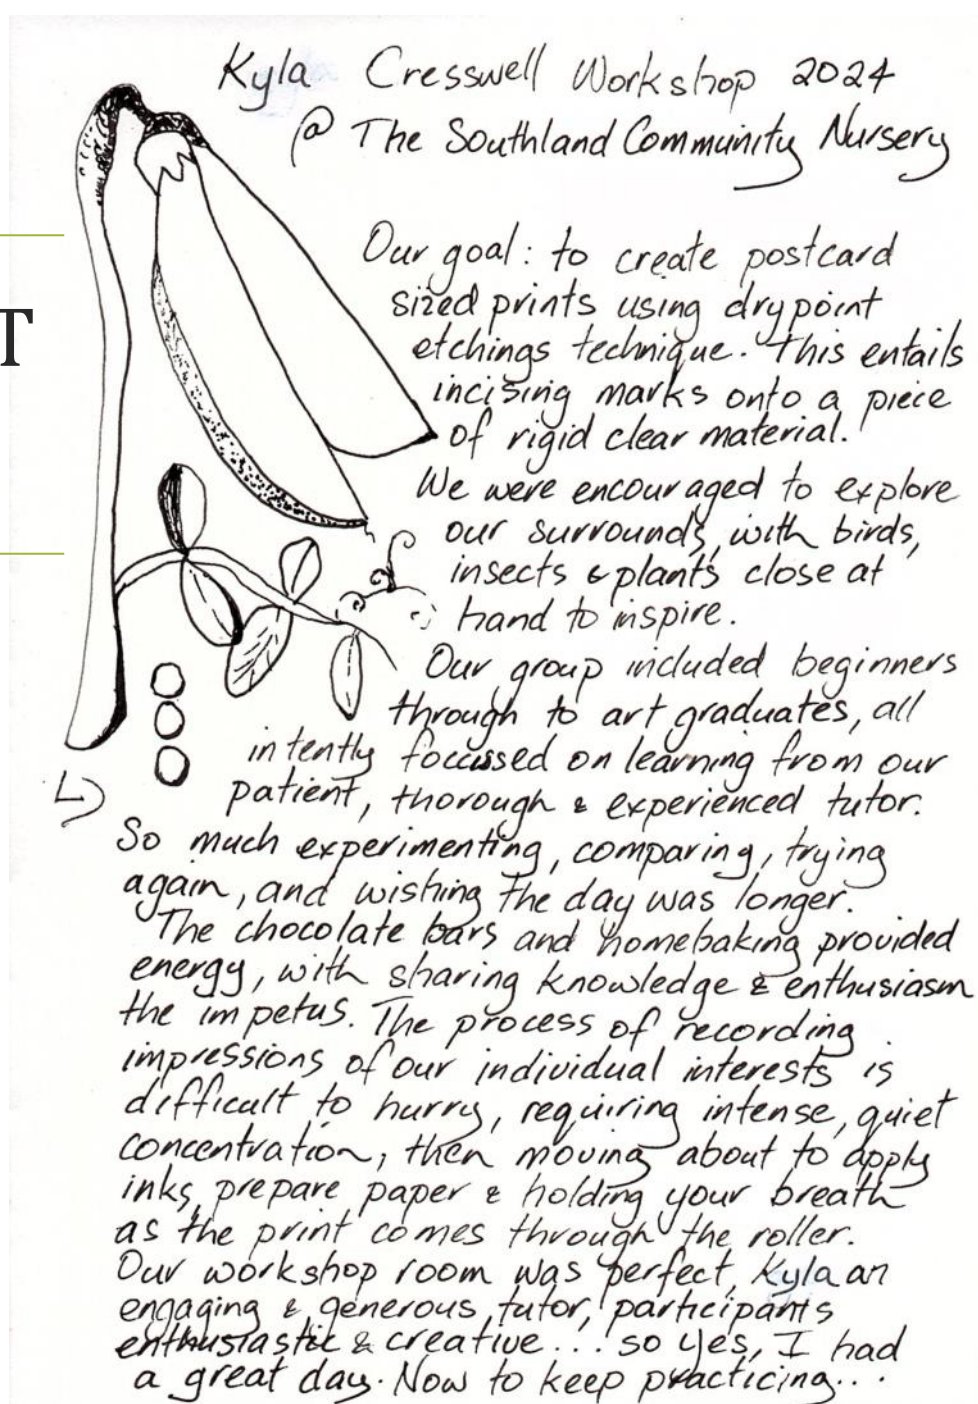 Kyla Cresswell Workshop 2024
@ The Southland Community Nursery
T
Our goal: to create postcard
sized prints using drypoint
etchings technique. This entails
incising marks onto a piece
of rigid clear material.
We were encouraged to explore
our surrounds, with birds,
insects & plants close at
hand to inspire.
Our group included beginners
through to art graduates, all
intently focussed on learning from our
patient, thorough & experienced tutor.
So much experimenting, comparing, trying
again, and wishing the day was longer.
The chocolate bars and homebaking provided
energy, with sharing knowledge & enthusiasm
the impetus. The process of recording
impressions of our individual interests is
difficult to hurry, requiring intense, quiet
concentration, then moving about to apply
inks, prepare paper & holding your breath
as the print comes through the roller.
Our workshop room was perfect, Kyla an
engaging & generous tutor, participants
enthusiastic & creative... so yes, I had
a great day. Now to keep practicing...